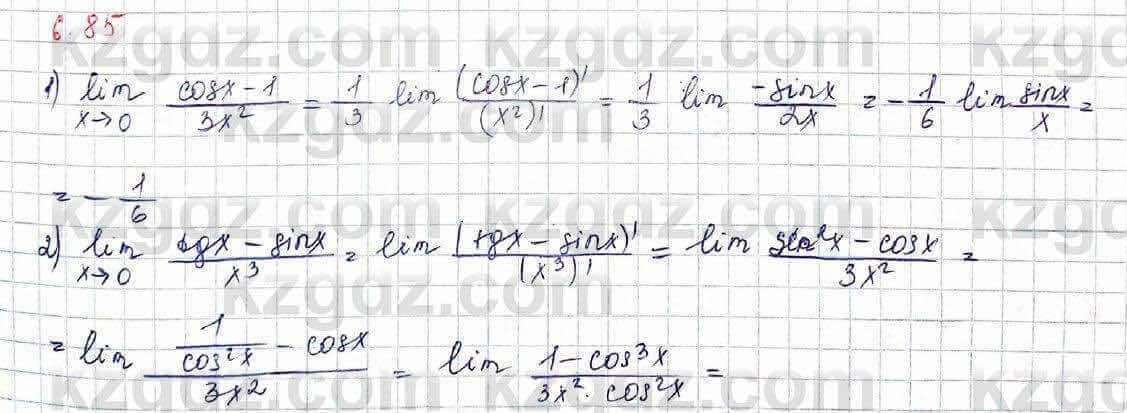 6.85
1) lim x→0 (cosx−1)/(3x²) = 1/3 lim (cosx−1)'/(x²)' = 1/3 lim (−sinx)/(2x) = −1/6 lim sinx/x =
= −1/6
2) lim x→0 (tgx − sinx)/x³ = lim (tgx − sinx)'/(x³)' = lim (sec²x − cosx)/(3x²) =
= lim (1/cos²x − cosx)/(3x²) = lim (1−cos³x)/(3x²·cos²x) =
kzgdz.com
kzgdz.com
kzgdz.com
kzgdz.com